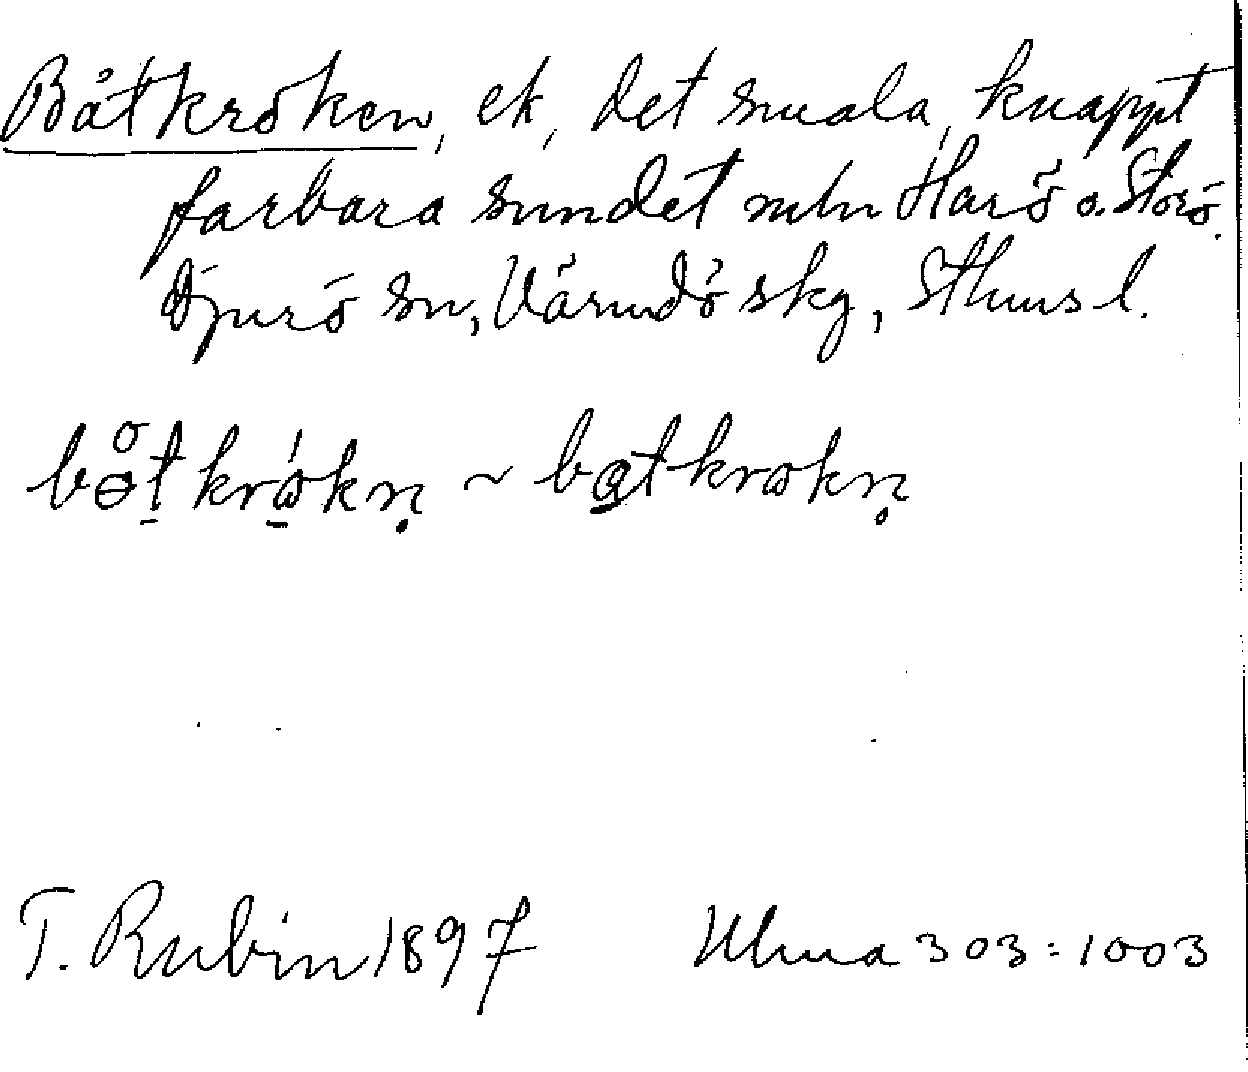 Båtkroken, ek, det smala, knappt
farbara sundet mln Harö o. Storö.
Djurö sn, Värmdö skg, Sthms l.
T. Rubin 1897 Ulma 303:1003